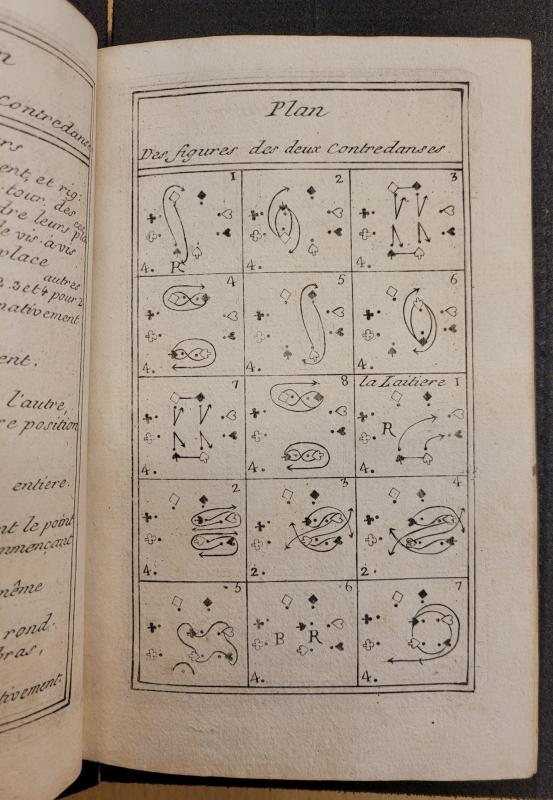 n
Contredanses
rs
ent, et rig:
tour des
dre leurs pla
le vis-à-vis
place
autres
2. 3 et 4 pour 2
nativement
ent.
l'autre,
re position
entiere.
nt le point
mmençant
même
rond.
bras,
tivement.
Plan
Des figures des deux Contredanses
1 2 3
R
4. 4. 4.
4 5 6
4. 4. 4.
7 8 la Laitiere 1
R
4. 4. 4.
2 3 4
4. 2. 2.
5 6 7
B R
4. 4. 4.